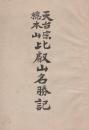 天台宗
総本山
比叡山名勝記